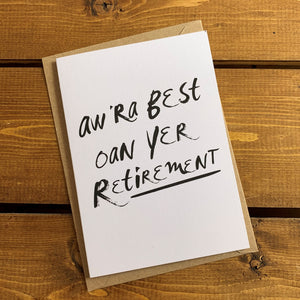 aw'ra BEST
oan YER
RetiREMENT